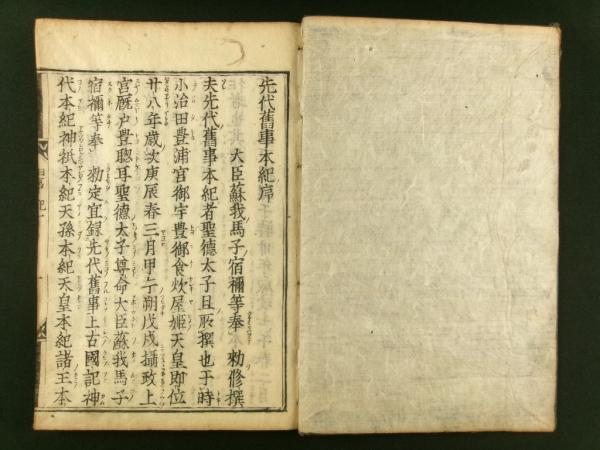 先代舊事本紀序
大臣蘇我馬子宿禰等奉 勅修撰
夫先代舊事本紀者聖德太子且所撰也于時
小治田豊浦宮御宇豊御食炊屋姫天皇即位
廿八年歳次庚辰春三月甲午朔戊戌攝政上
宮厩戸豊聰耳聖德太子尊命大臣蘇我馬子
宿禰等奉 勅定宜録先代舊事上古國記神
代本紀神祇本紀天孫本紀天皇本紀諸王本
舊紀一